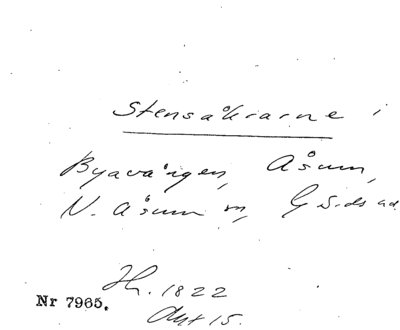 Stensåkrarne i
Byavången, Åsum,
N. Åsum sn, Gärds hd
Hr. 1822
Akt 15.
Nr 7965.